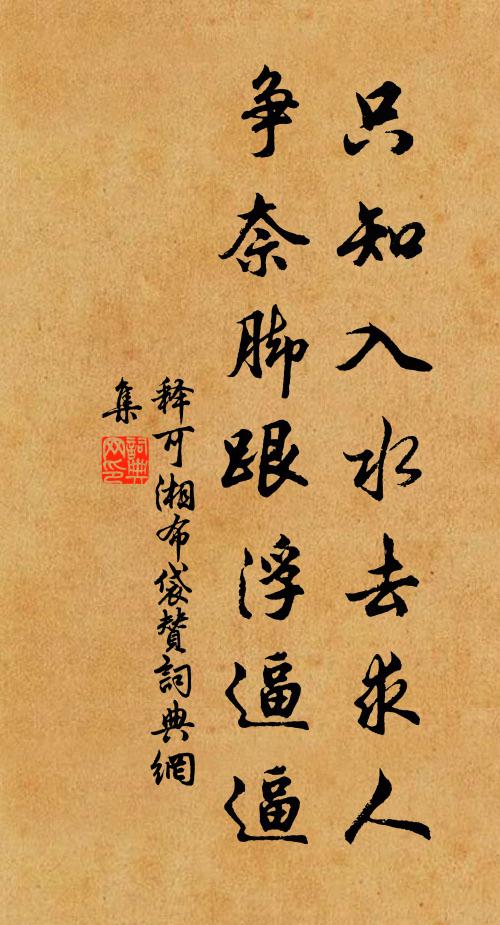 只知入水去求人
争奈脚跟浮逼逼
释可湘布袋赞詞典網
集
詞典
网印